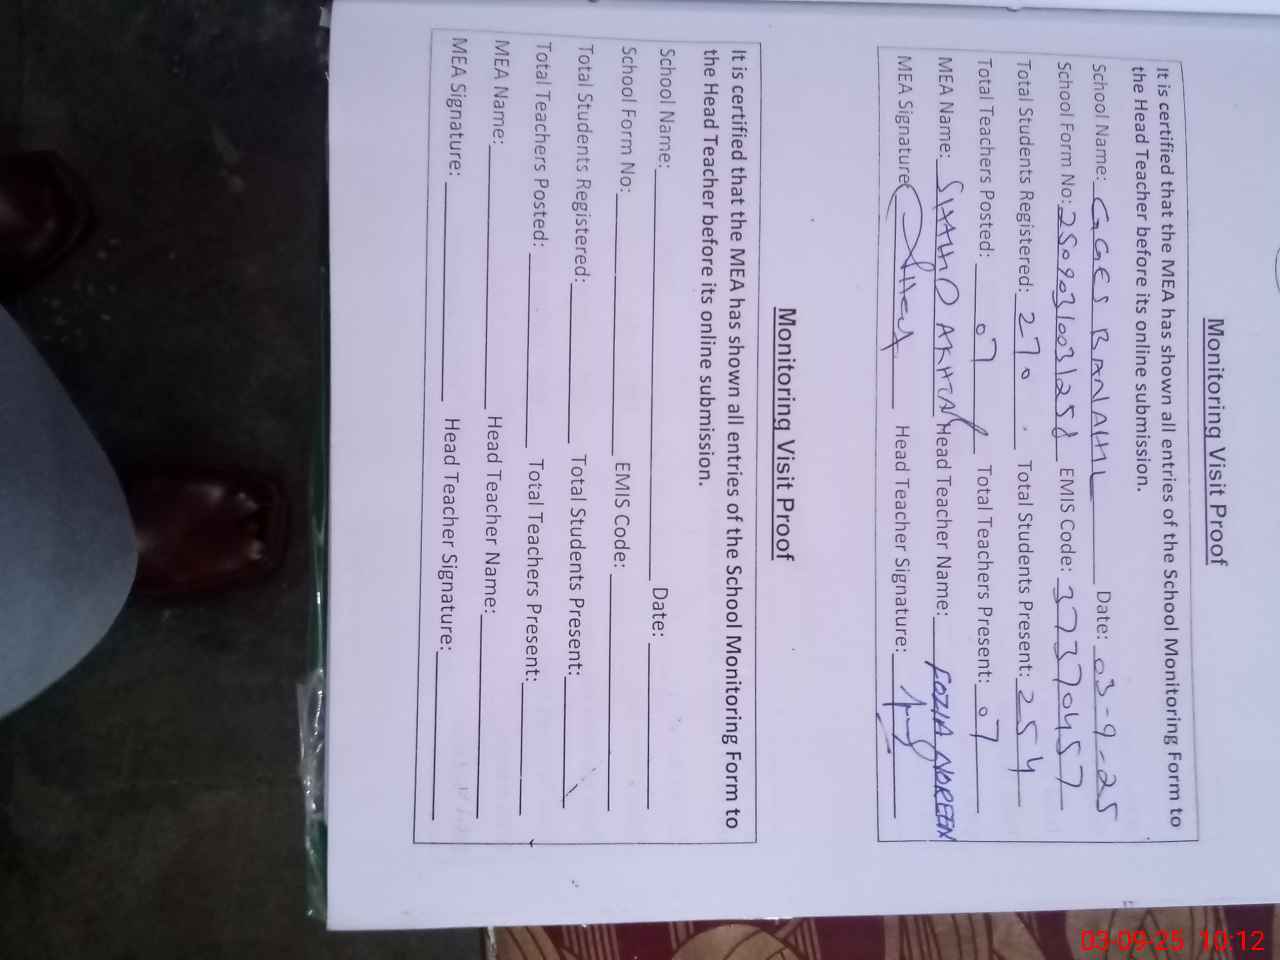 Monitoring Visit Proof
It is certified that the MEA has shown all entries of the School Monitoring Form to
the Head Teacher before its online submission.
School Name: GGES BANAHIL Date: 03-9-25
School Form No: 25090310031258 EMIS Code: 37370457
Total Students Registered: 270 Total Students Present: 254
Total Teachers Posted: 07 Total Teachers Present: 07
MEA Name: SHAHID AKHTAR Head Teacher Name: FOZIA NOREEN
MEA Signature Head Teacher Signature:
Monitoring Visit Proof
It is certified that the MEA has shown all entries of the School Monitoring Form to
the Head Teacher before its online submission.
School Name: Date:
School Form No: EMIS Code:
Total Students Registered: Total Students Present:
Total Teachers Posted: Total Teachers Present:
MEA Name: Head Teacher Name:
MEA Signature: Head Teacher Signature:
03-09-25 10:12